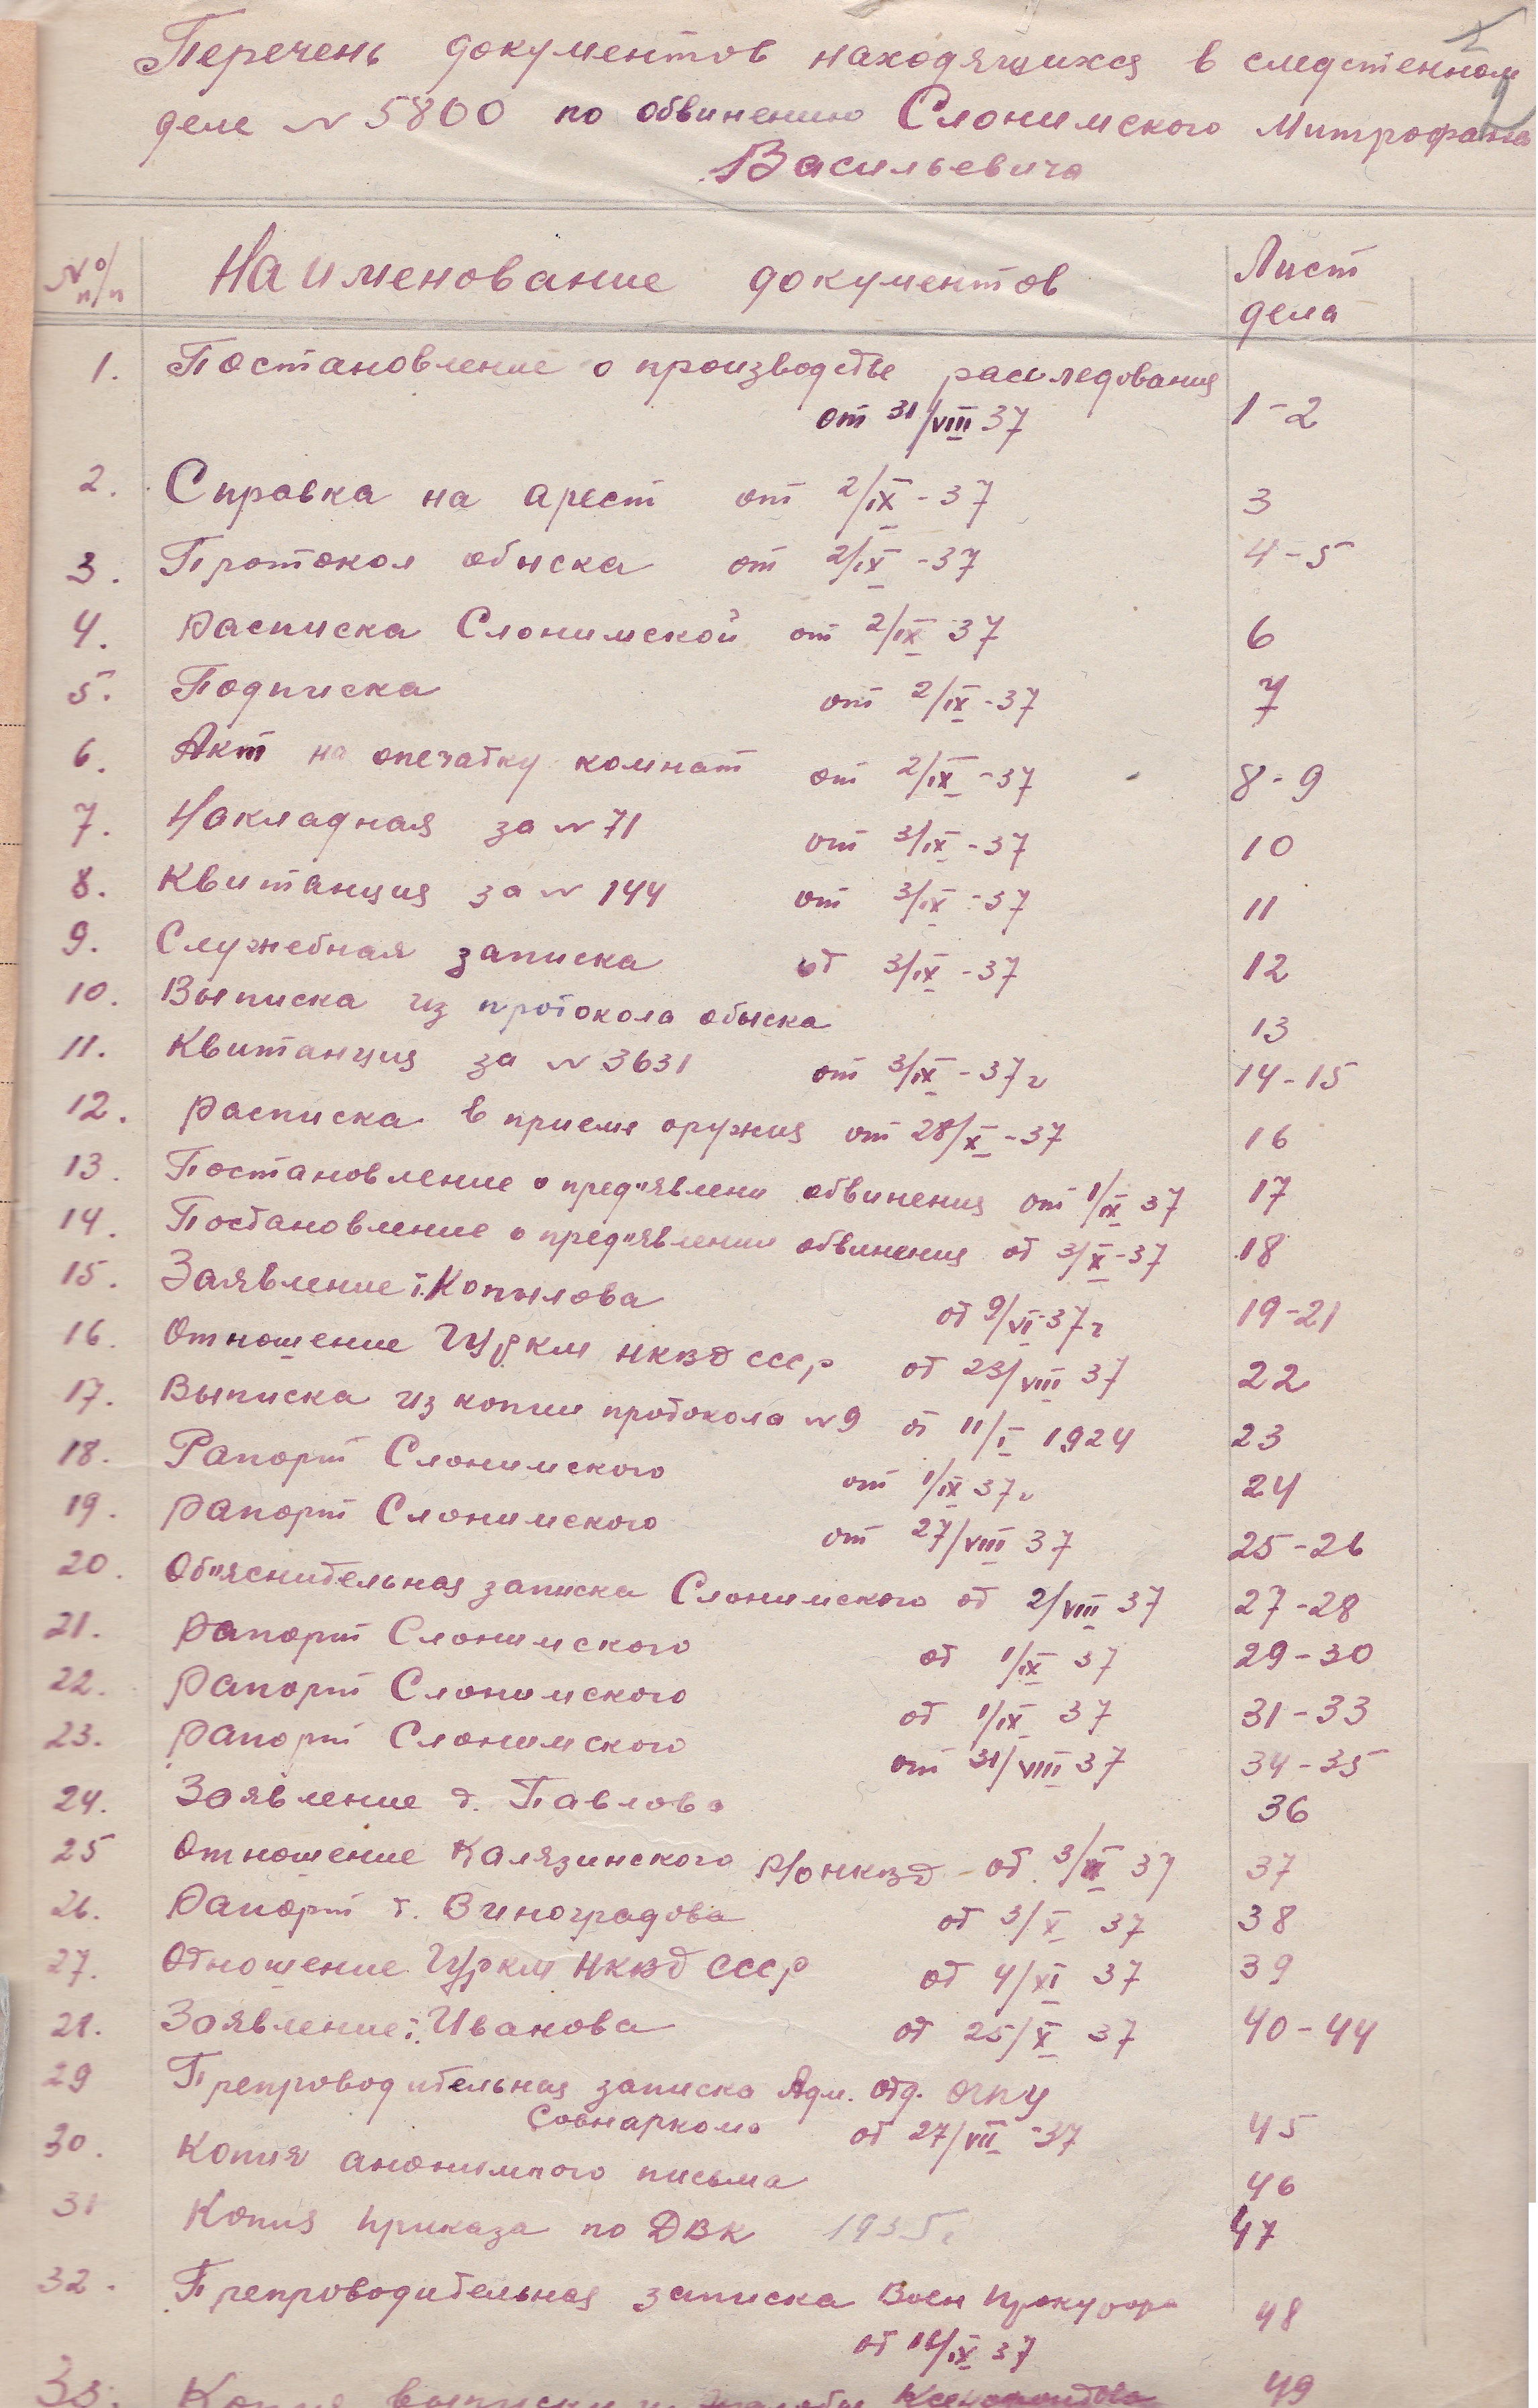 Перечень документов находящихся в следственном
деле № 5800 по обвинению Слонимского Митрофана
Васильевича
№ п/п Наименование документов Лист дела
1. Постановление о производстве расследования
от 31/VIII 37 1-2
2. Справка на арест от 2/IX-37 3
3. Протокол обыска от 2/IX-37 4-5
4. Расписка Слонимской от 2/IX 37 6
5. Подписка от 2/IX-37 7
6. Акт на опечатку комнат от 2/IX-37 8-9
7. Накладная за № 71 от 3/IX-37 10
8. Квитанция за № 144 от 3/IX-37 11
9. Служебная записка от 3/IX-37 12
10. Выписка из протокола обыска 13
11. Квитанция за № 3631 от 3/IX-37г 14-15
12. Расписка в приеме оружия от 28/X-37 16
13. Постановление о пред"явлени обвинения от 1/IX 37 17
14. Постановление о пред"явлении обвинения от 3/X-37 18
15. Заявление т. Копылова от 9/VI-37г 19-21
16. Отношение ГУРКМ НКВД СССР от 23/VIII 37 22
17. Выписка из копии протокола № 9 от 11/I 1924 23
18. Рапорт Слонимского от 1/IX 37г 24
19. Рапорт Слонимского от 27/VIII 37 25-26
20. Об"яснительная записка Слонимского от 2/VIII 37 27-28
21. Рапорт Слонимского от 1/IX 37 29-30
22. Рапорт Слонимского от 1/IX 37 31-33
23. Рапорт Слонимского от 31/VIII 37 34-35
24. Заявление т. Павлова 36
25 Отношение Калязинского Р/О НКВД - от 3/ 37 37
26. Рапорт т. Виноградова от 3/X 37 38
27. Отношение ГУРКМ НКВД СССР от 4/XI 37 39
28. Заявление т. Иванова от 25/X 37 40-44
29 Препроводительная записка Адм. Отд. ОГПУ
Совнаркома от 27/VII-37 45
30. Копия анонимного письма 46
31 Копия приказа по ДВК 1935г. 47
32. Препроводительная записка Воен Прокурора
от /IX 37 48
33. Копия выписки из 49